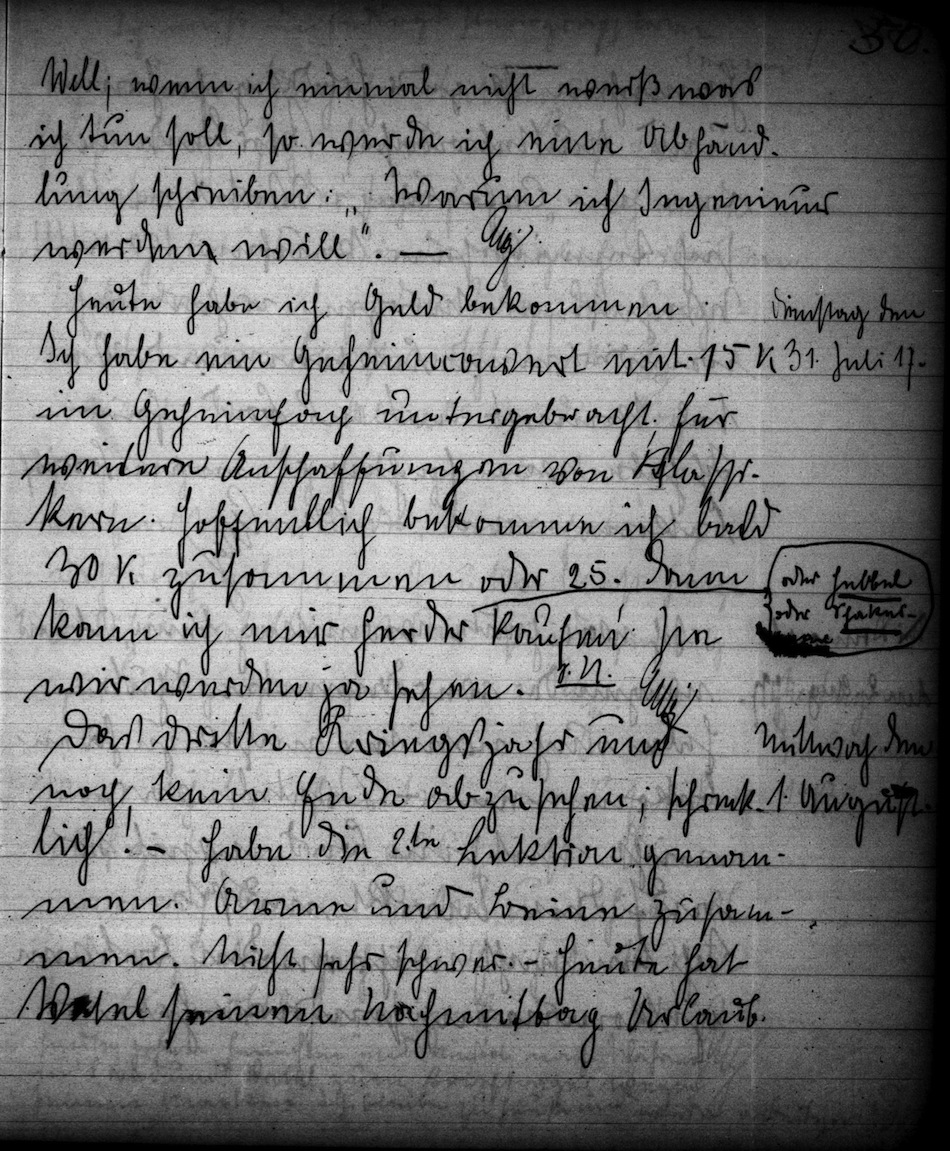 350.
Well; wenn ich einmal nicht weiß was
ich tun soll, so werde ich eine Abhand-
lung schreiben: „Warum ich Ingenieur
werden will". —
Heute habe ich Geld bekommen.
Dienstag den
31. Juli 17.
Ich habe ein Geheimcouvert mit 15 K
im Geheimfach untergebracht für
weitere Anschaffungen von Klassi-
kern. Hoffentlich bekomme ich bald
30 K zusammen oder 25. Dann
oder Hebbel
oder Shakes-
kann ich mir Herder kaufen. Na
wir werden ja sehen.
Das dritte Kriegsjahr und
Mittwoch den
1. August
noch kein Ende abzusehen; schreck-
lich! – Habe die 2.te Lektion genom-
men. Arme und Beine zusam-
men. Nicht sehr schwer. – Heute hat
Wesel seinen Nachmittag Urlaub.